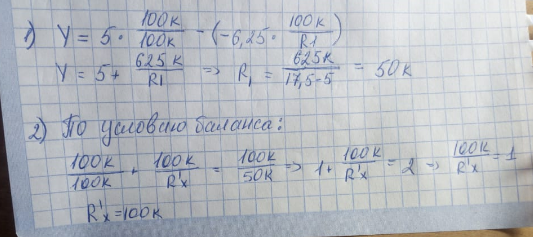 1) Y = 5 · 100k/100k - (-6,25 · 100k/R1)
Y = 5 + 625k/R1 => R₁ = 625k/17,5-5 = 50k
2) По условию баланса:
100k/100k + 100k/R'x = 100k/50k => 1 + 100k/R'x = 2 => 100k/R'x = 1
R'x = 100k